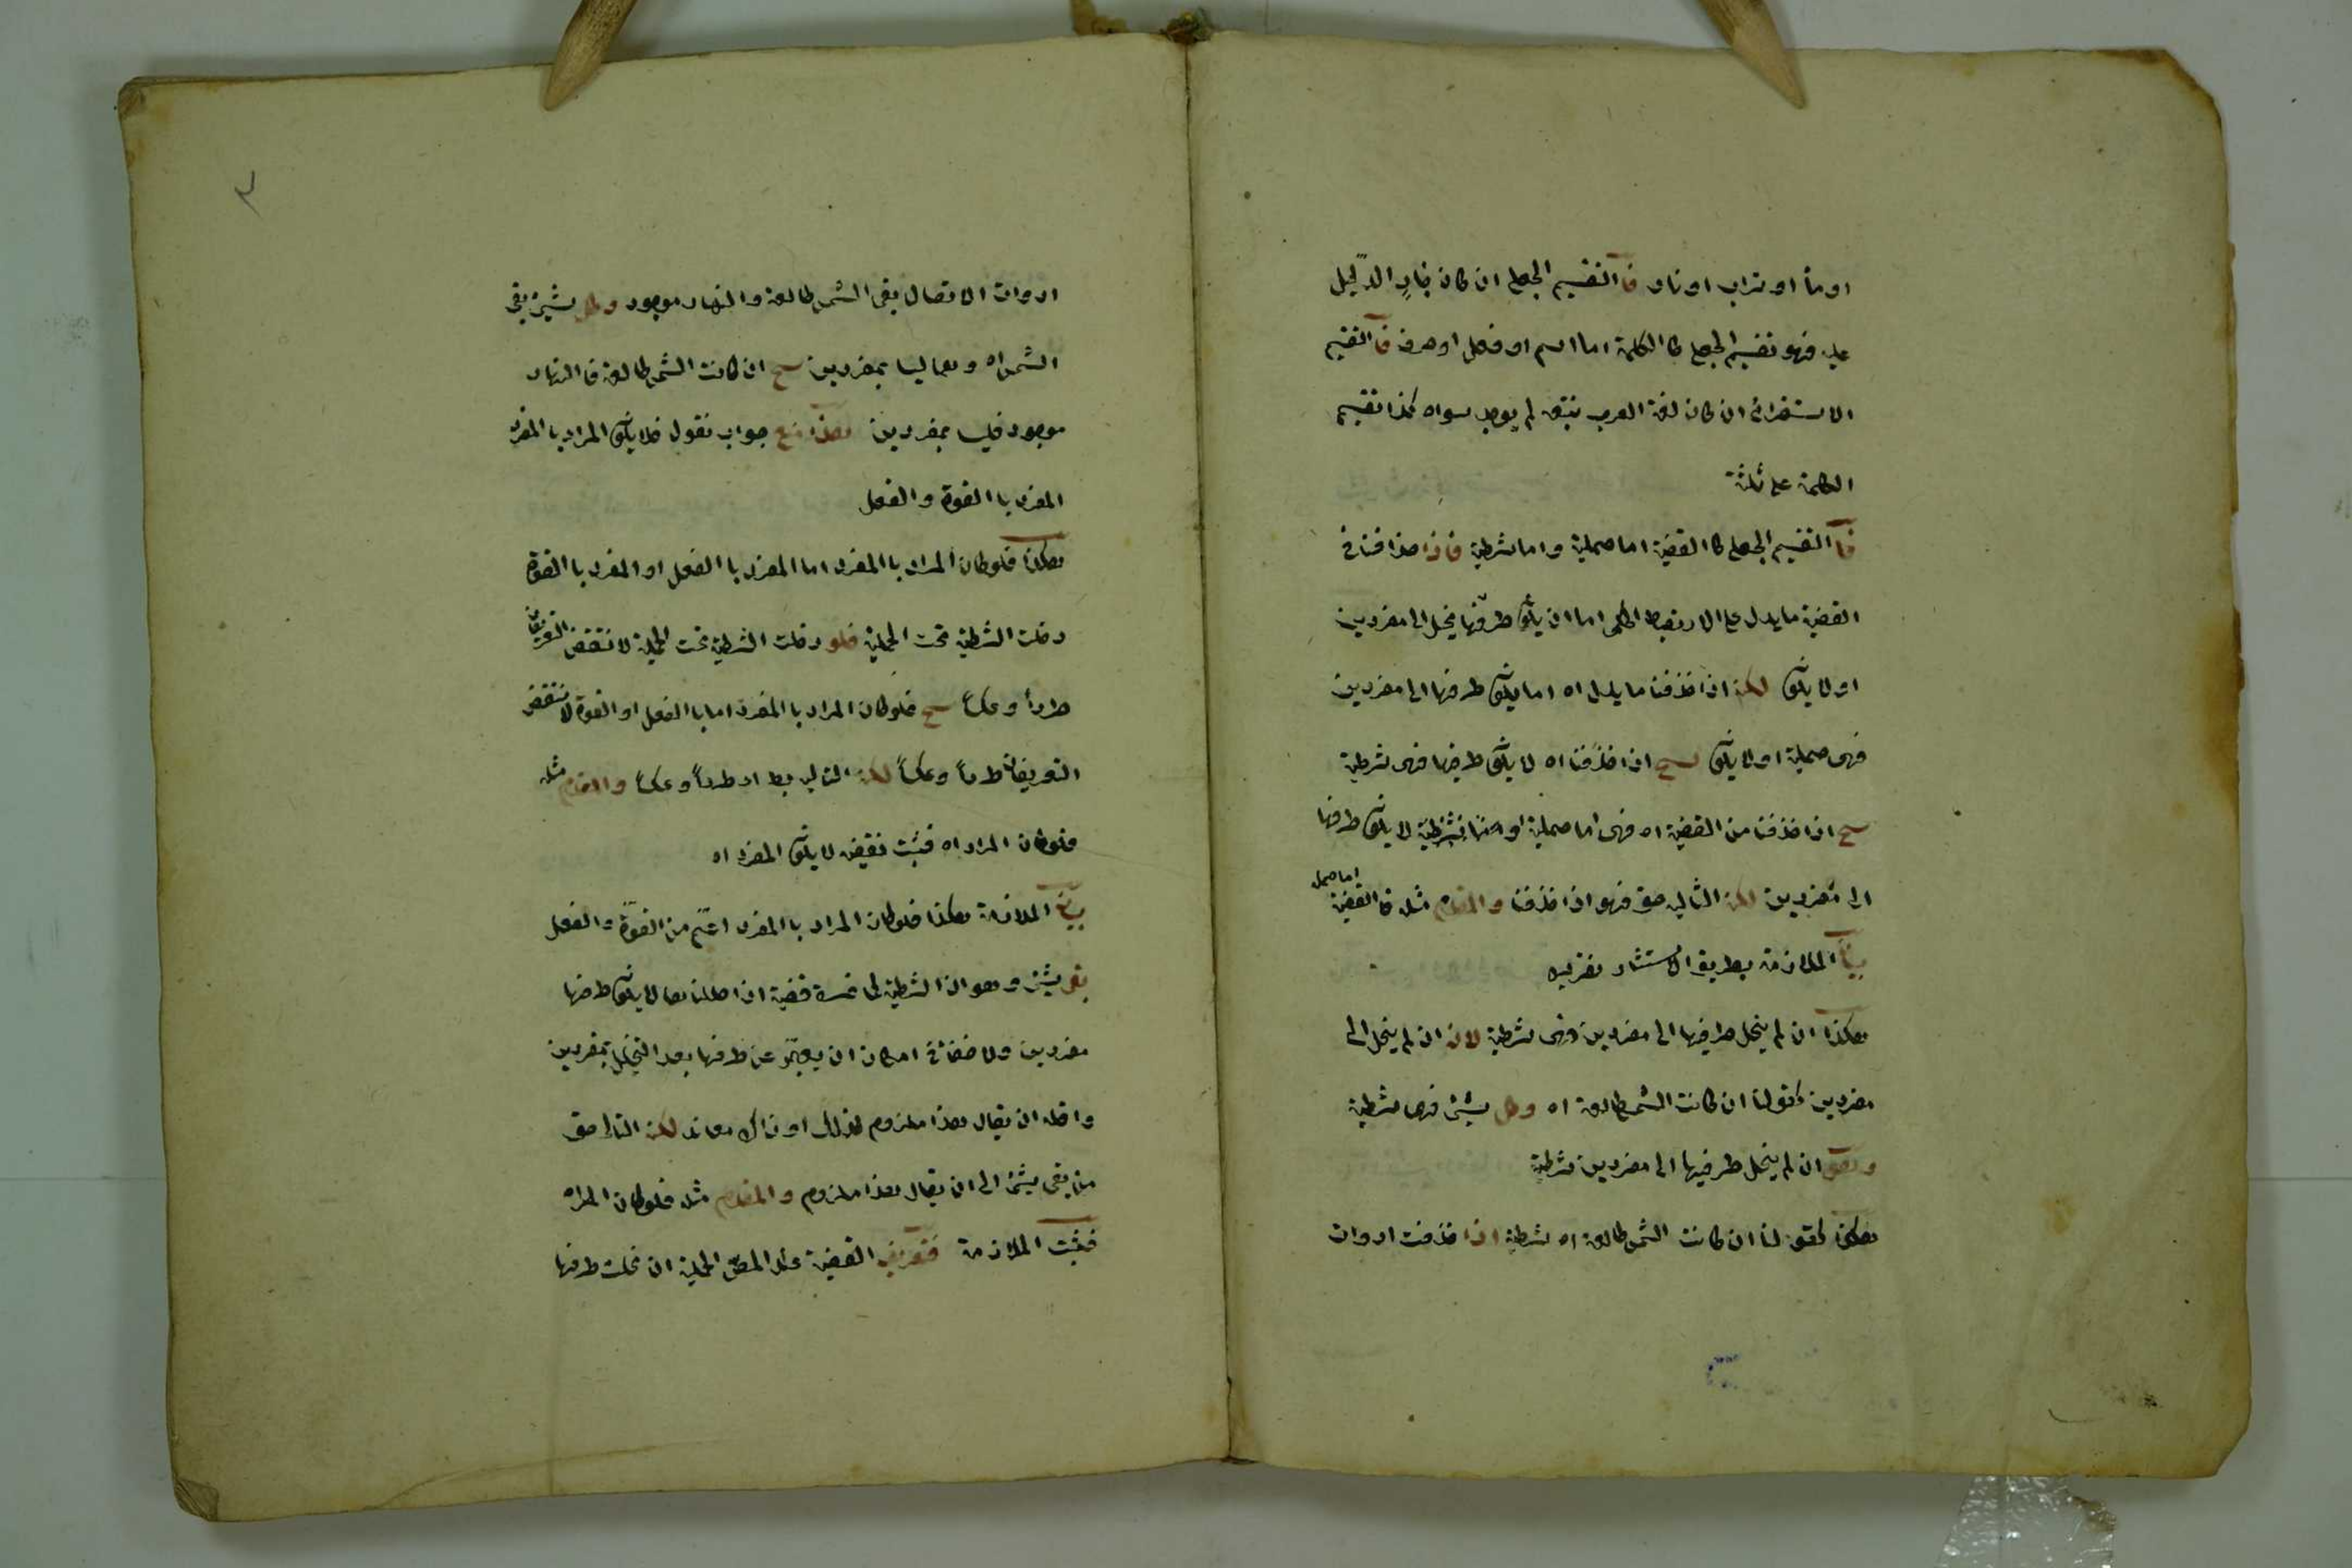 او مأ او تراب او نار فا التقسيم الجعلي ان كان بنادٍ الدّليل
عليه فهو تقسيم الجعلي كا الكلمة اما اسم او فعل او حرف فا التقسيم
الاستقرائى ان كان لغة العرب تتبع لم يوجد سواه كذا تقسيم
الكلمة على ثلثة
فا التقسيم الجعلي كا القضية اما حملية واما شرطية فاذا حذفنا فى
القضية ما يدل على الارتباط الحكمى اما ان يكون طرفيها ينحل الى مفردين
او لا يكون لكن اذا حذفنا ما يدل اه اما يكون طرفيها الى مفردين
فهى حملية او لا يكون سح اذا حذفنا اه لا يكون طرفيها فهى شرطية
سح اذا حذفنا من القضية اه فهى اما حملية او اما شرطية لا يكون طرفها
الى مفردين لكن التالى حق فهو اذا حذفنا والمقدم مثله فا القضية اما حمل
بيان الملازمة بطريق الاستثناء
هكذا ان لم ينحل طرفيها الى مفردين فهى شرطية لان ان لم ينحل الى
مفردين كقولنا ان كانت الشمس طالعة اه وكل شئ فهى شرطية
ان لم ينحل طرفيها الى مفردين شرطية
هكذا كقولنا ان كانت الشمس طالعة اه شرطية اذا حذفت ادوات
٣
ادوات الاتصال بقى الشمس طالعة والنهار موجود وكل شئ بقى
الشمس اه وهما ليسا بمفردين سح ان كانت الشمس طالعة فا النهار
موجود فليسا بمفردين هذا منع جواب نقول فلا يكون المراد با المفرد
المفرد با القوة والفعل
هكذا فلو كان المراد با المفرد اما المفرد با الفعل او المفرد با القوة
دخلت الشرطية تحت الحملية فلو دخلت الشرطية تحت الحملية لانتقض التعريفان
طرداً وعكساً سح فلو كان المراد با المفرد اما با الفعل او القوة لانتقض
التعريفان طرداً وعكساً لكن التالى بط اه طرداً وعكساً والمقدم مثله
فلو كان المراد اه فثبت نقيضه لا يكون المفرد اه
بيان الملازمة هكذا فلو كان المراد با المفرد اعمّ من القوّة والفعل
بقى شئ وهو ان الشرطية قضية اذا حللناها لا يكون طرفها
مفردين ولا خفاء فى امكان ان يعبّر عن طرفيها بعد التحليل بمفردين
واقله ان يقال هذا ملزوم لذلك او ذاك معاند لكن التالى حق
من بقى شئ الى ان يقال هذا ملزوم والمقدم مثله فلو كان المراد
فثبت الملازمة فتعريف القضية عند المص الحملية ان نحلت طرفها